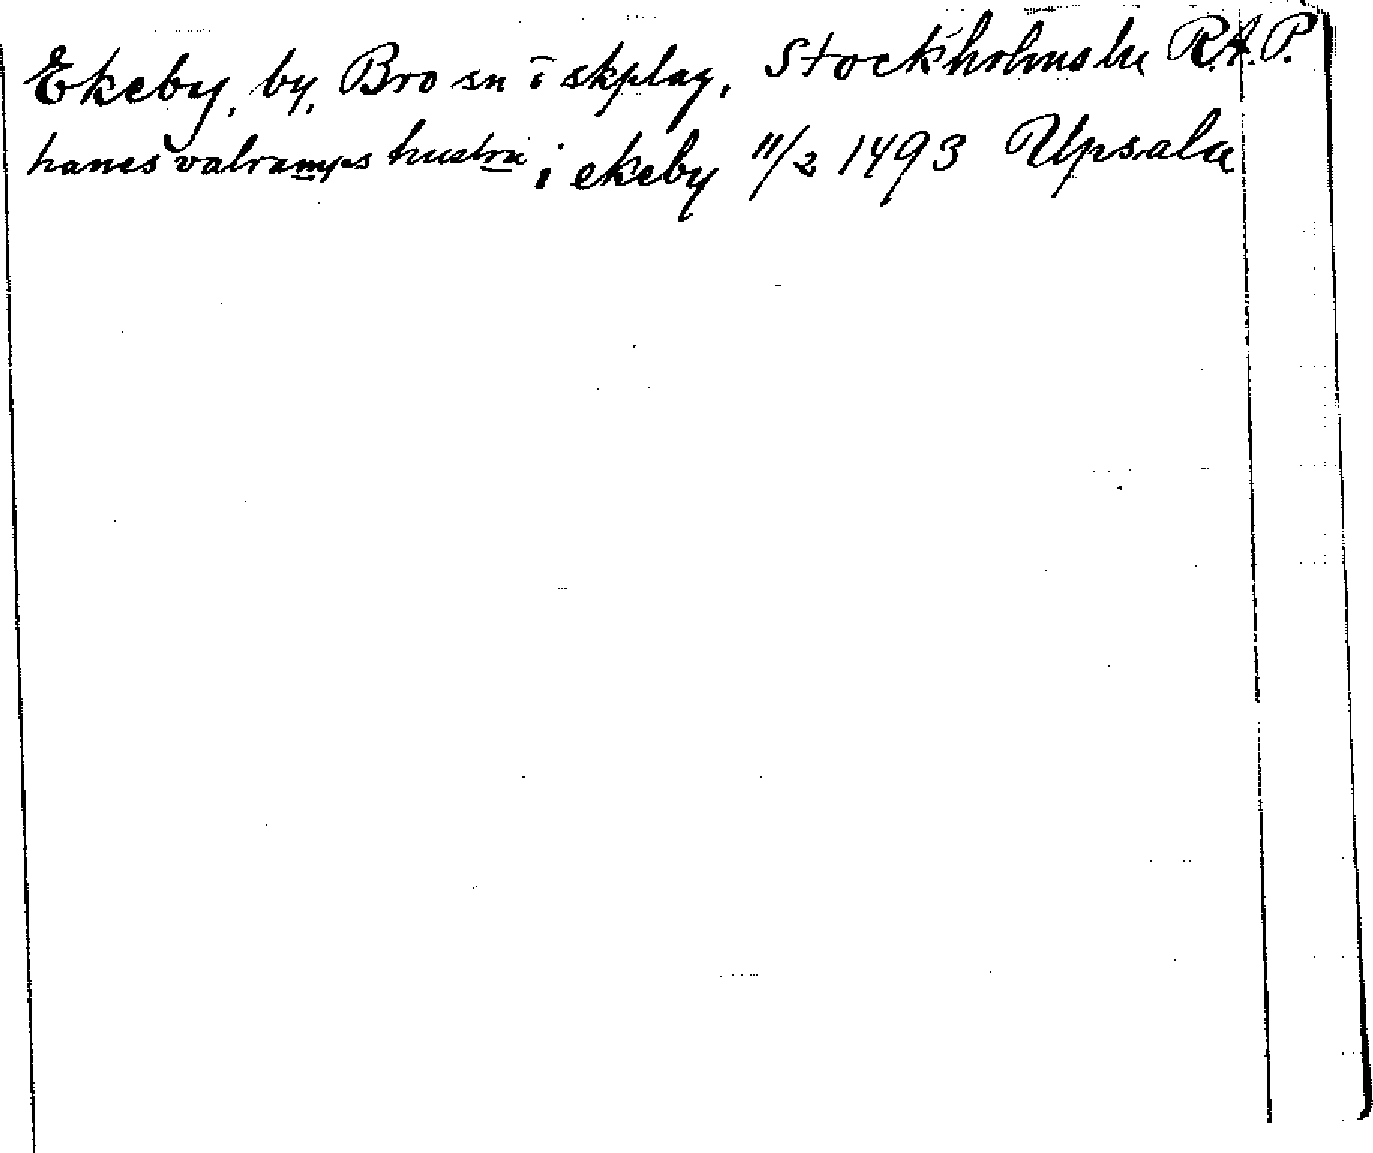 Ekeby, by, Bro sn i skplag, Stockholms län R.A.P.
hanes valramps hustru i ekeby 11/2 1493 Upsala